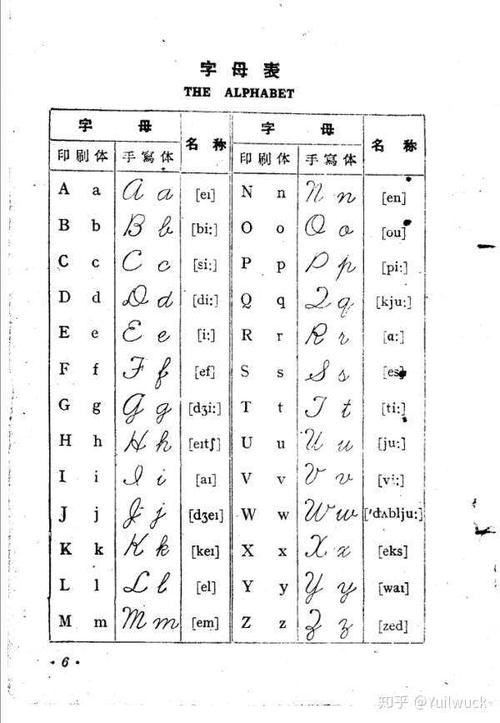 字母表
THE ALPHABET
字 母 名称 字 母 名称
印刷体 手寫体 印刷体 手寫体
A a A a [eɪ] N n N n [en]
B b B b [bi:] O o O o [ou]
C c C c [si:] P p P p [pi:]
D d D d [di:] Q q Q q [kju:]
E e E e [i:] R r R r [ɑ:]
F f F f [ef] S s S s [es]
G g G g [dʒi:] T t T t [ti:]
H h H h [eɪtʃ] U u U u [ju:]
I i I i [aɪ] V v V v [vi:]
J j J j [dʒeɪ] W w W w ['dʌblju:]
K k K k [keɪ] X x X x [eks]
L l L l [el] Y y Y y [waɪ]
M m M m [em] Z z Z z [zed]
· 6 ·
知乎 @Yuilwuck